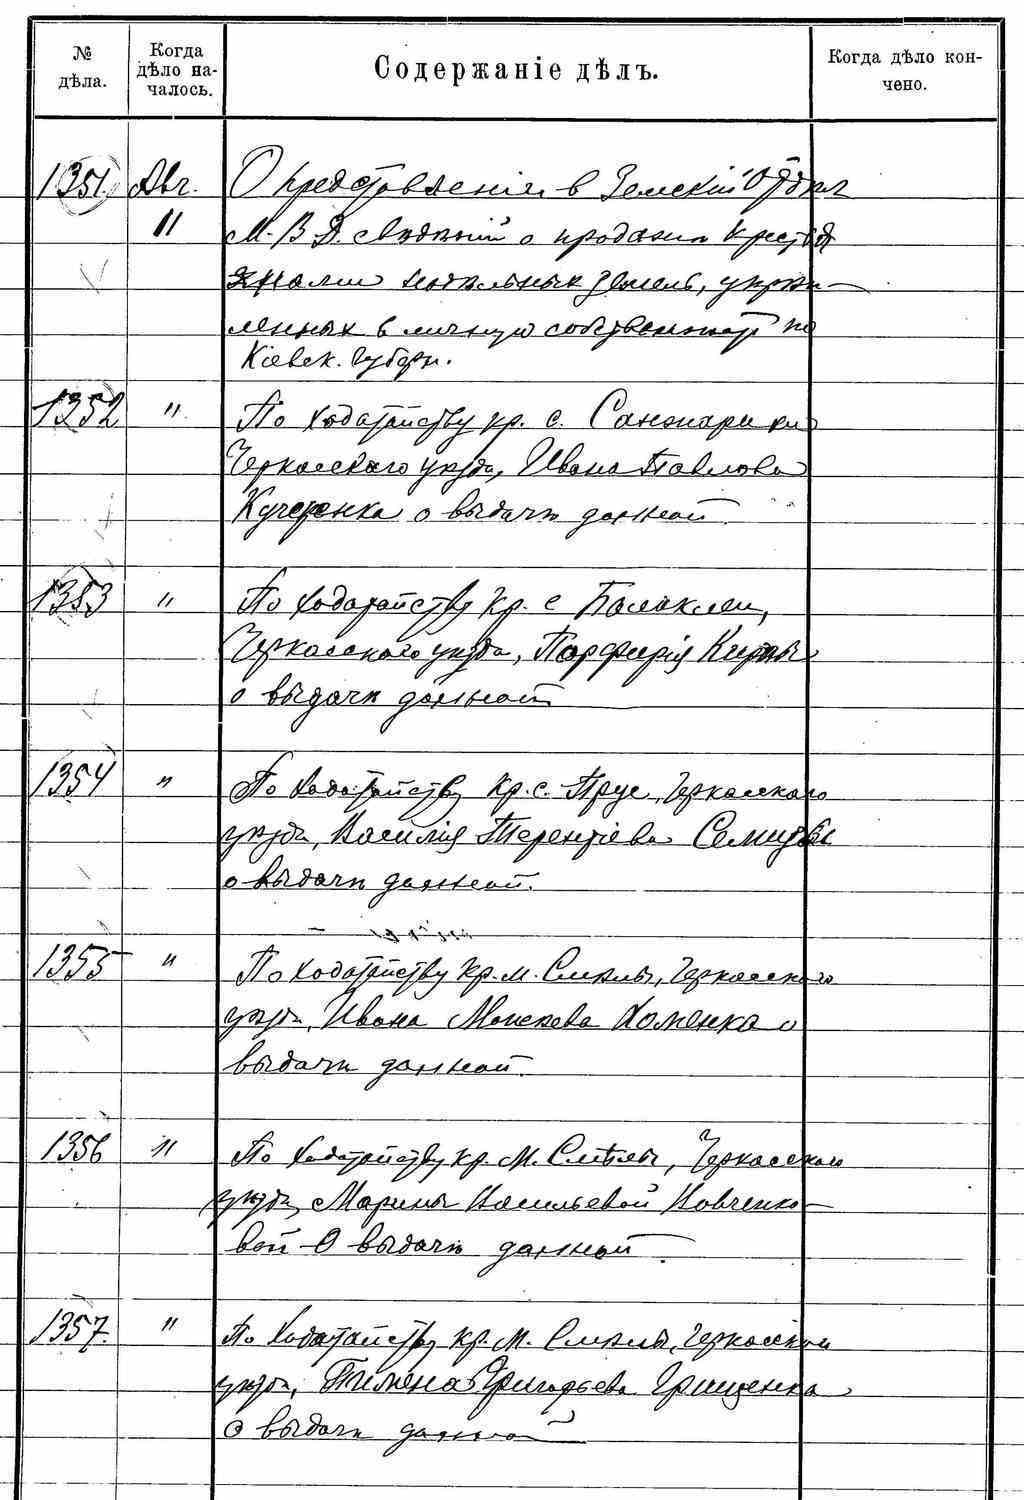 № дѣла.
Когда дѣло на-
чалось.
Содержаніе дѣлъ.
Когда дѣло кон-
чено.
1351. Авг. О представленіи в Земскій Отдѣл
" М. В. Д. о продажи крестья
надѣльных земель, укрѣп-
ленных в личную собственность по
Кіевск. губерн.
1352 " По ходатайству кр. с. Санжарихи
Черкасского уѣзда, Ивана Павлова
Кучеренка о выдачи данной
1353 " По ходатайству кр. с Балаклеи,
Черкасского уѣзда, Порфирія Кирпы
о выдачи данной
1354 " По ходатайству кр. с. Прус, Черкасского
уѣзда, Василія Терентіева
о выдачи данной.
1355 " По ходатайству кр. м. Смѣлы, Черкасского
уѣзда, Ивана Моисеева Хоменка о
выдачи данной.
1356 " По ходатайству кр. М. Смѣлы, Черкасского
уѣзда, Марины Васильевой Вовченко-
вой о выдачи данной
1357. " По ходатайству кр. М. Смѣлы, Черкасского
уѣзда, Пимена Григорьева Грищенка
о выдачи данной